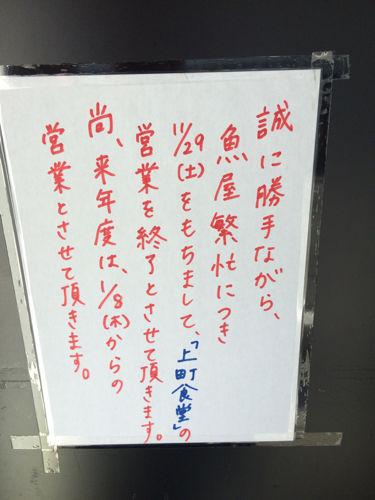 誠に勝手ながら、
魚屋繁忙につき
11/29(土)をもちまして、「上町食堂」の
営業を終了とさせて頂きます。
尚、来年度は、1/8(木)からの
営業とさせて頂きます。